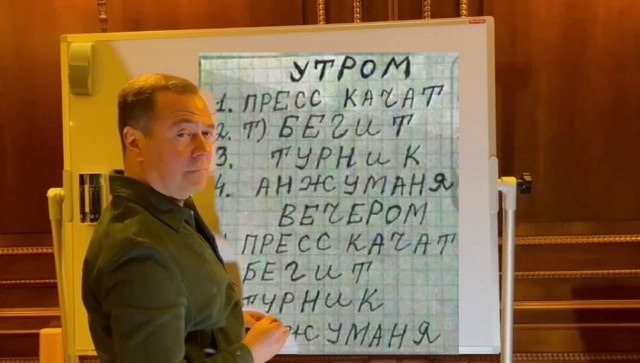 УТРОМ
1. ПРЕСС КАЧАТ
2. Т) БЕГИТ
3. ТУРНИК
4. АНЖУМАНЯ
ВЕЧЕРОМ
ПРЕСС КАЧАТ
БЕГИТ
ТУРНИК
АНЖУМАНЯ